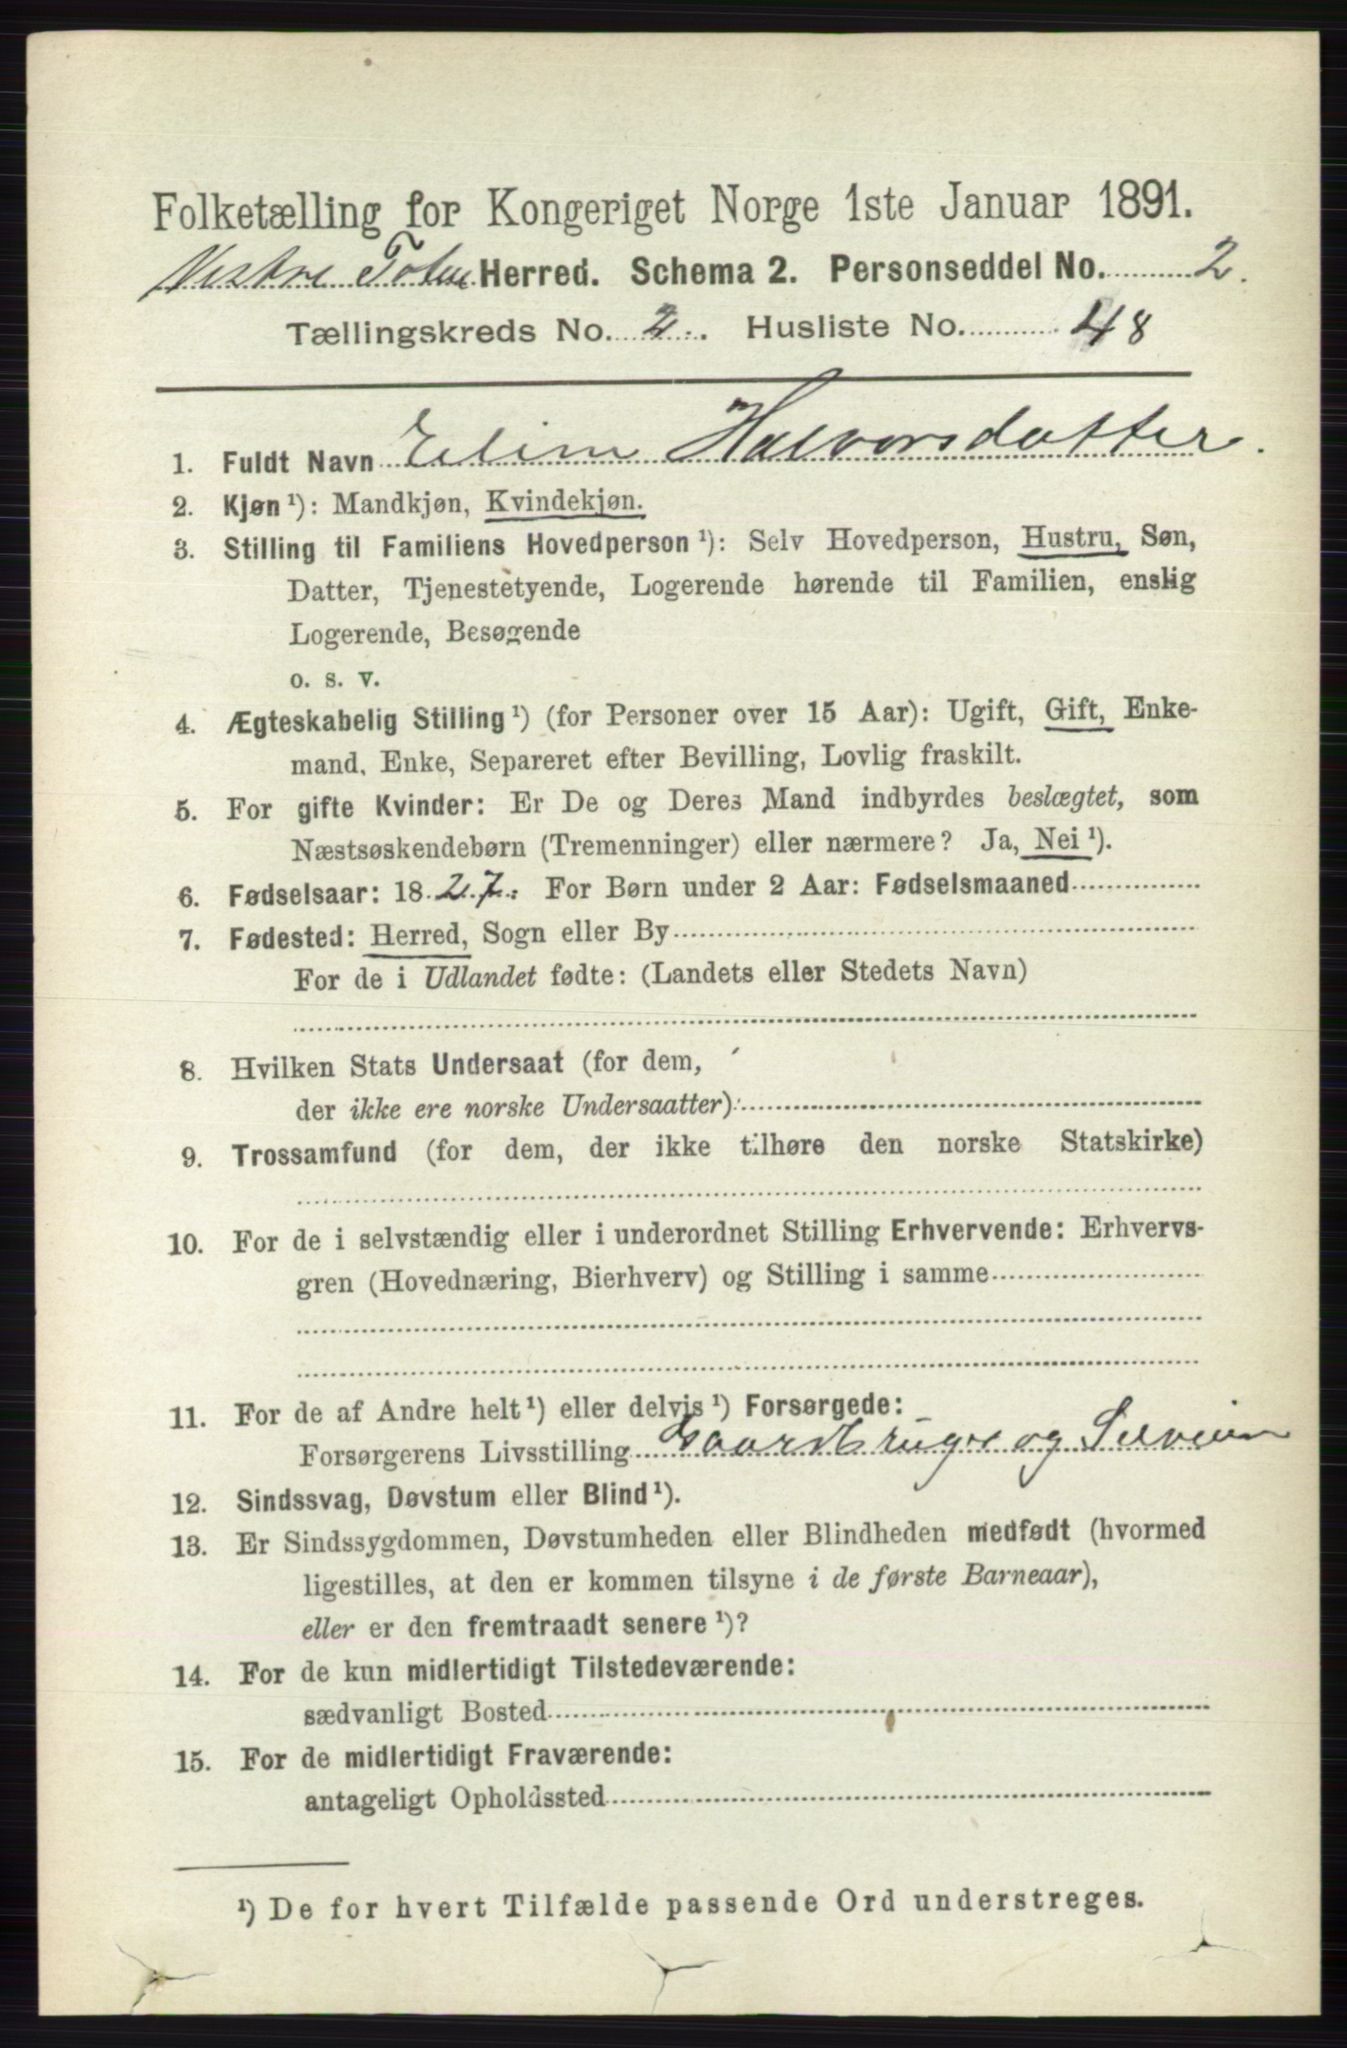 Folketælling for Kongeriget Norge 1ste Januar 1891.
Vestre Toten Herred. Schema 2. Personseddel No. 2.
Tællingskreds No. 2. Husliste No. 48
1. Fuldt Navn Eline Halvorsdatter.
2. Kjøn ¹): Mandkjøn, Kvindekjøn.
3. Stilling til Familiens Hovedperson ¹): Selv Hovedperson, Hustru, Søn,
Datter, Tjenestetyende, Logerende hørende til Familien, enslig
Logerende, Besøgende
o. s. v.
4. Ægteskabelig Stilling ¹) (for Personer over 15 Aar): Ugift, Gift, Enke-
mand, Enke, Separeret efter Bevilling, Lovlig fraskilt.
5. For gifte Kvinder: Er De og Deres Mand indbyrdes beslægtet, som
Næstsøskendebørn (Tremenninger) eller nærmere? Ja, Nei ¹).
6. Fødselsaar: 1827. For Børn under 2 Aar: Fødselsmaaned
7. Fødested: Herred, Sogn eller By
For de i Udlandet fødte: (Landets eller Stedets Navn)
8. Hvilken Stats Undersaat (for dem,
der ikke ere norske Undersaatter):
9. Trossamfund (for dem, der ikke tilhøre den norske Statskirke)
10. For de i selvstændig eller i underordnet Stilling Erhvervende: Erhvervs-
gren (Hovednæring, Bierhverv) og Stilling i samme
11. For de af Andre helt ¹) eller delvis ¹) Forsørgede:
Forsørgerens Livsstilling Gaardbruger og Seleier
12. Sindssvag, Døvstum eller Blind ¹).
13. Er Sindssygdommen, Døvstumheden eller Blindheden medfødt (hvormed
ligestilles, at den er kommen tilsyne i de første Barneaar),
eller er den fremtraadt senere ¹)?
14. For de kun midlertidigt Tilstedeværende:
sædvanligt Bosted
15. For de midlertidigt Fraværende:
antageligt Opholdssted
¹) De for hvert Tilfælde passende Ord understreges.